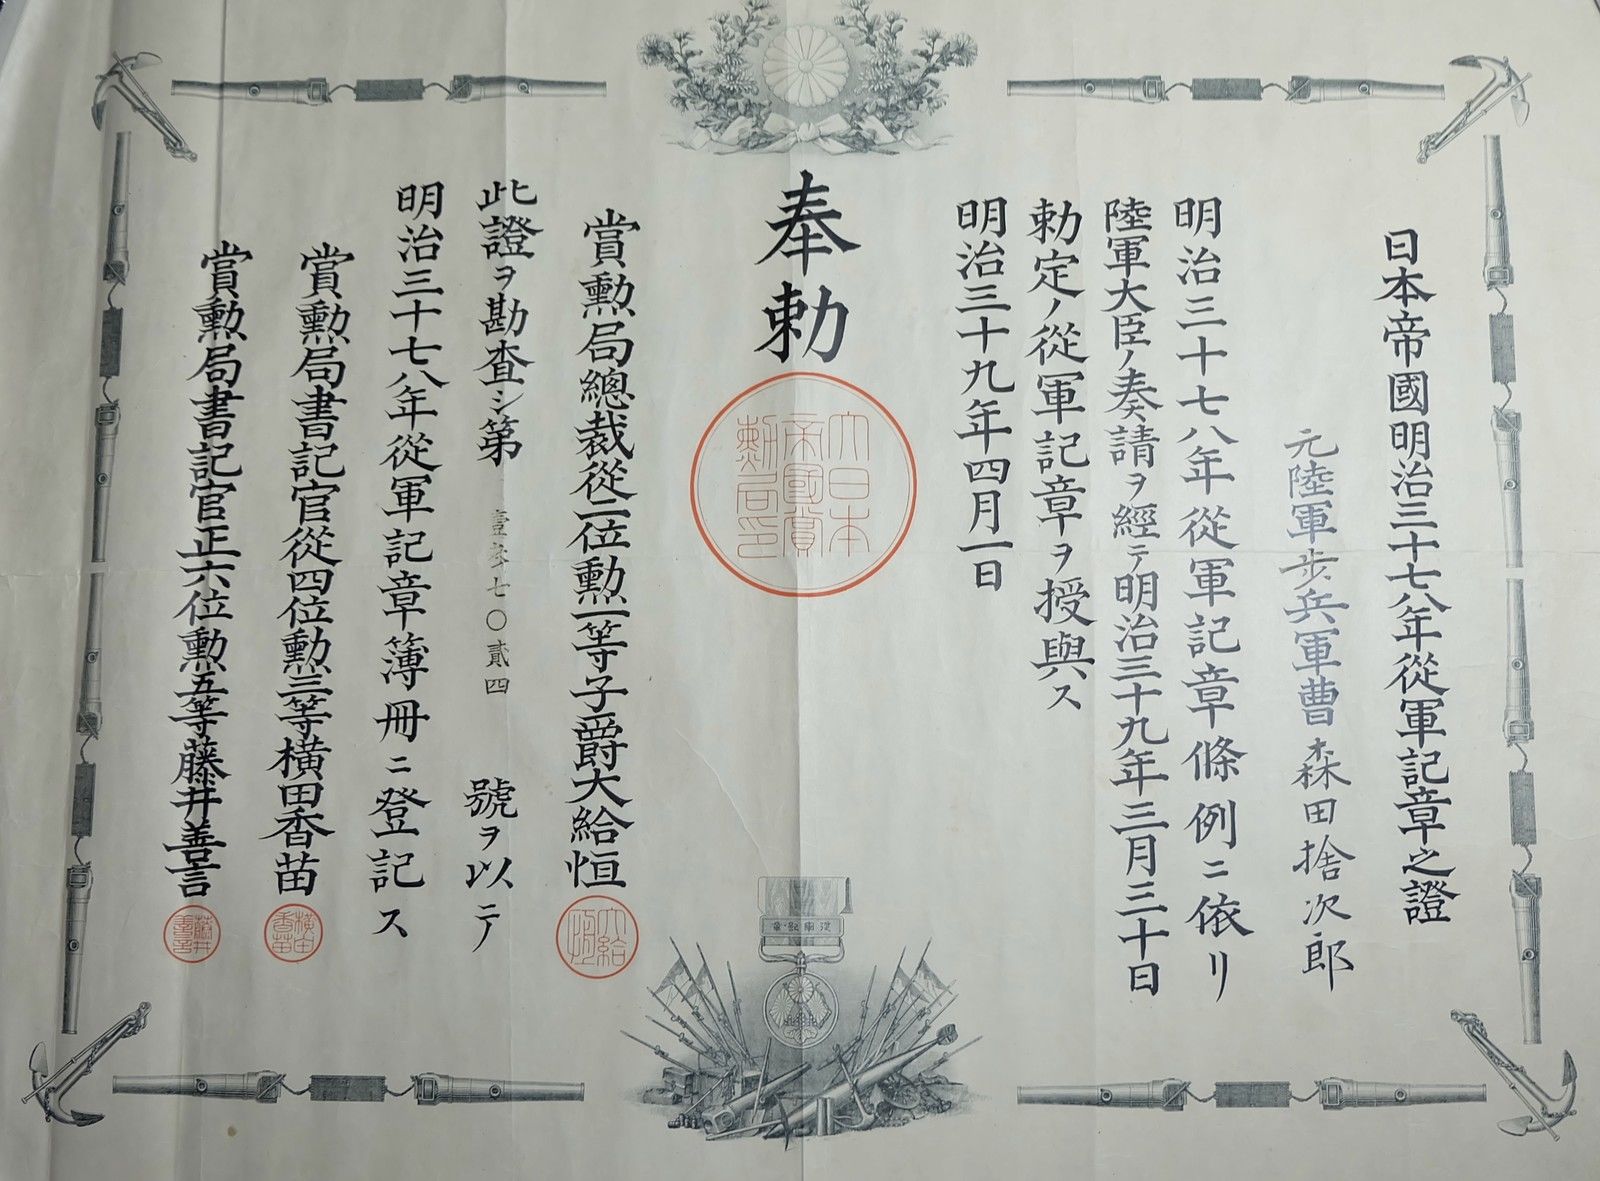 日本帝國明治三十七八年從軍記章之證
元陸軍步兵軍曹森田捨次郎
明治三十七八年從軍記章條例ニ依リ
陸軍大臣ノ奏請ヲ經テ明治三十九年三月三十日
勅定ノ從軍記章ヲ授與ス
明治三十九年四月一日
奉勅
大日本帝國賞勲局印
賞勲局總裁從二位勲一等子爵大給恒
此證ヲ勘査シ第壹参七〇貳四號ヲ以テ
明治三十七八年從軍記章簿冊ニ登記ス
賞勲局書記官從四位勲三等橫田香苗
橫田香苗
賞勲局書記官正六位勲五等藤井善言
從軍記章